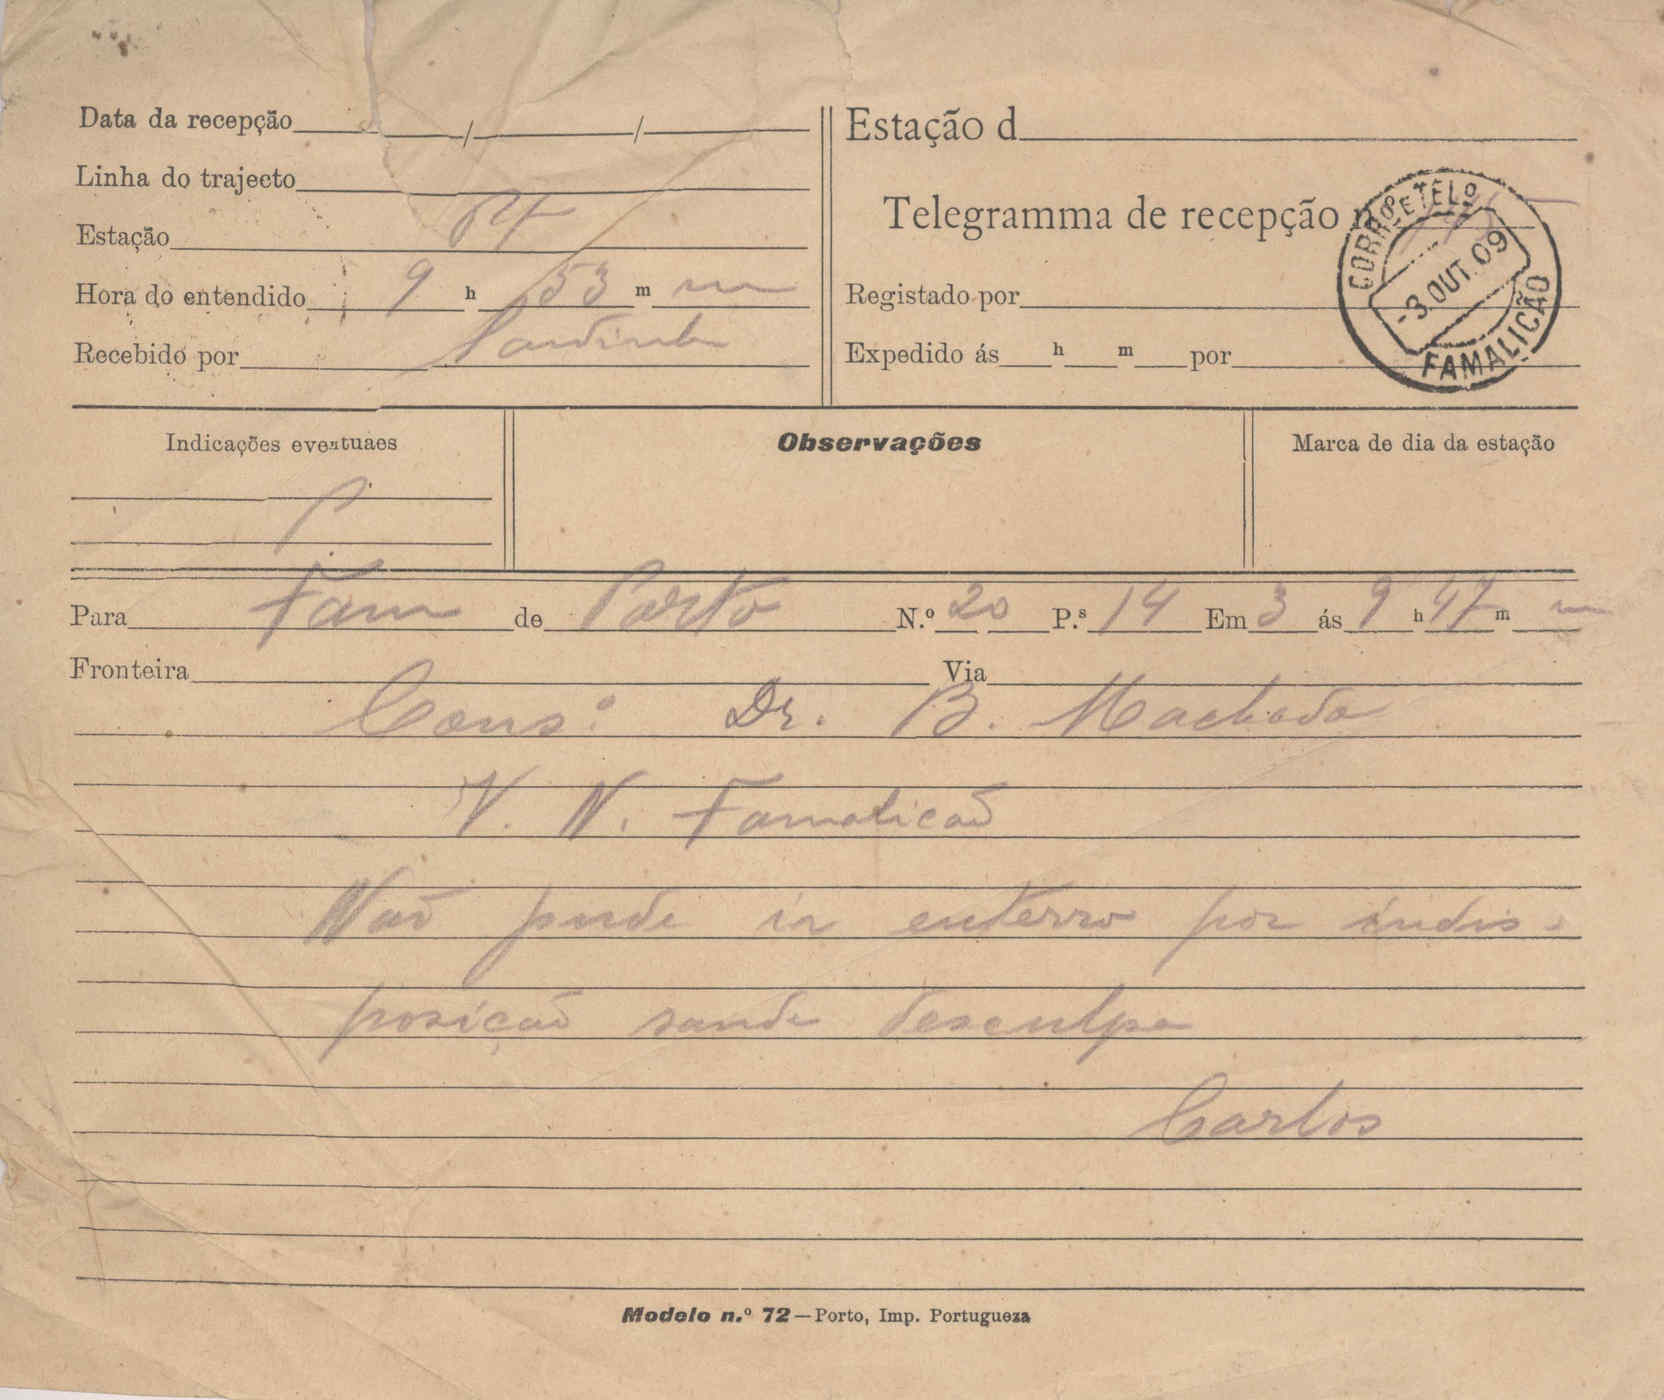 Data da recepção / /
Linha do trajecto
Estação
Hora do entendido 9 h 53 m m
Recebido por
Estação d
Telegramma de recepção n.º
Registado por
Expedido ás h m por
CORRº E TELº
-3. OUT. 09
FAMALICÃO
Indicações eventuaes
Observações
Marca de dia da estação
Para Fam de Porto N.º 20 P.s 14 Em 3 ás 9 h 47 m m
Fronteira Via
Cons.º Dr. B. Machado
V. N. Famalicaõ
Naõ pude ir enterro por indis-
posiçaõ saude desculpa
Carlos
Modelo n.º 72—Porto, Imp. Portugueza